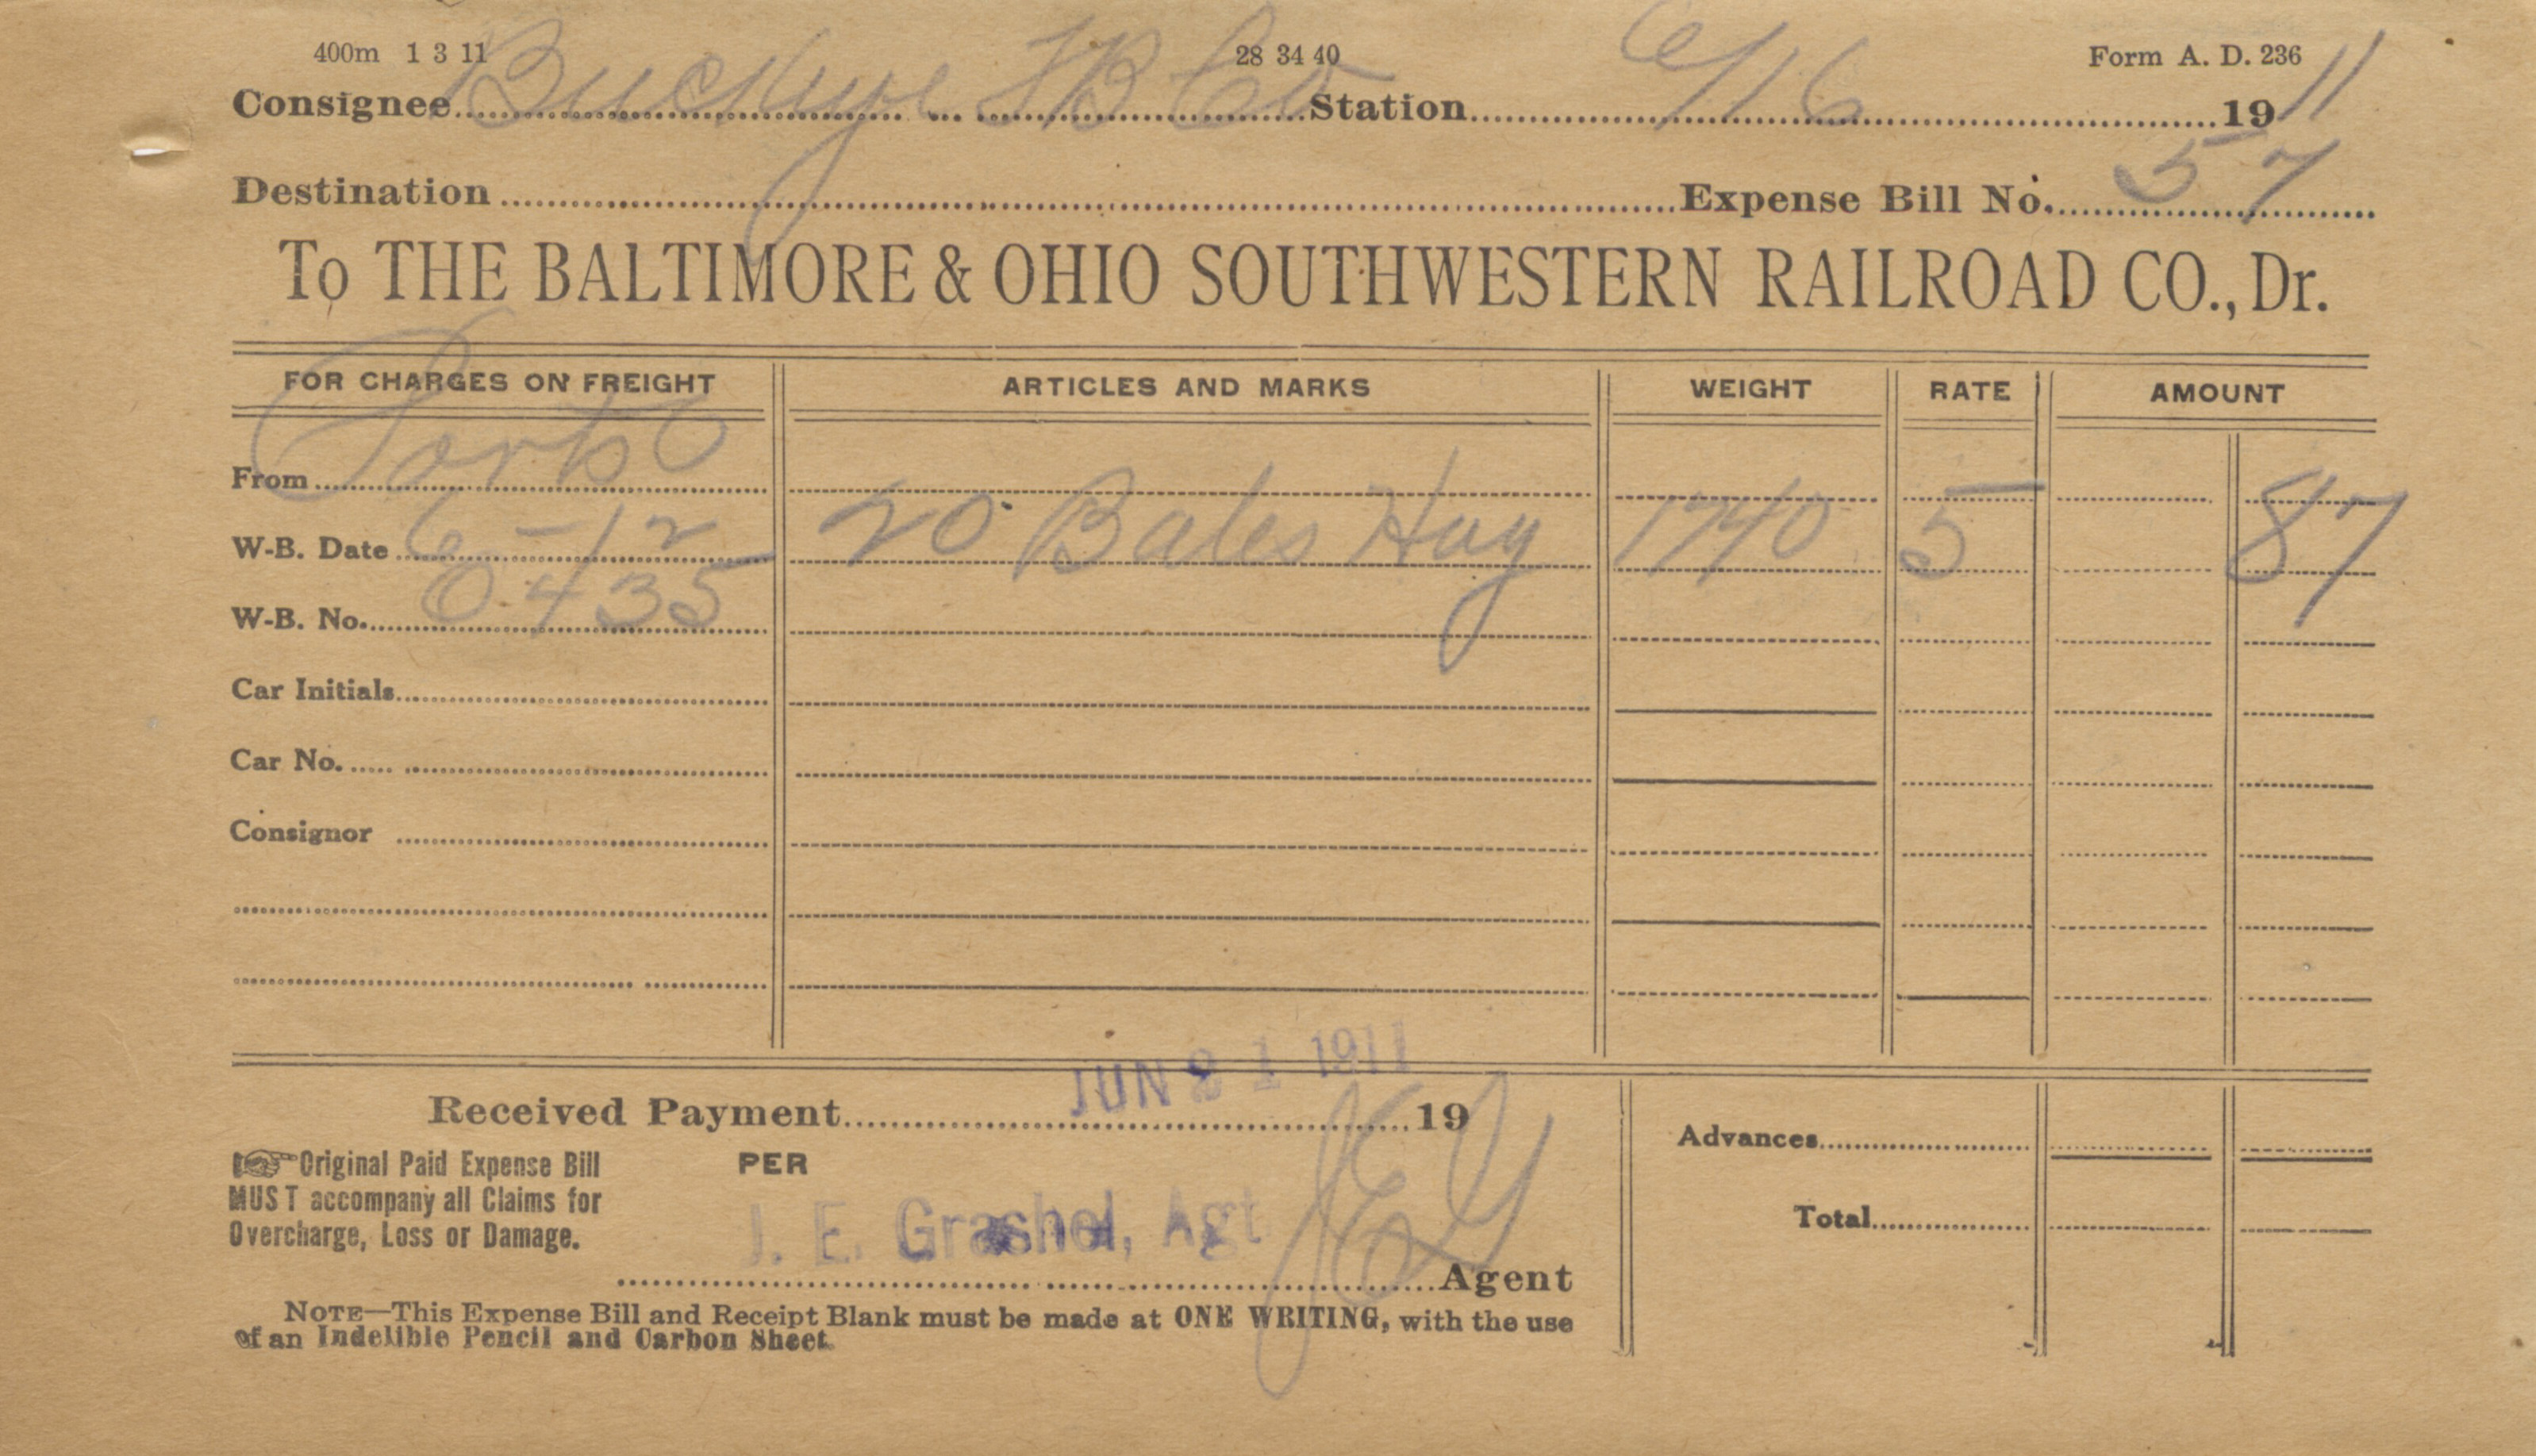 400m 1 3 11 28 34 40 Form A. D. 236
Consignee Buckeye F B Co Station 6/16 1911
Destination Expense Bill No. 57
To THE BALTIMORE & OHIO SOUTHWESTERN RAILROAD CO., Dr.
FOR CHARGES ON FREIGHT ARTICLES AND MARKS WEIGHT RATE AMOUNT
From
W-B. Date 6-12 20 Bales Hay 1740 5 87
W-B. No. 0435
Car Initials
Car No.
Consignor
JUN 21 1911
Received Payment 19
Advances
Original Paid Expense Bill PER
MUST accompany all Claims for
Overcharge, Loss or Damage.
Total
J. E. Grashel, Agt
Agent
NOTE—This Expense Bill and Receipt Blank must be made at ONE WRITING, with the use
of an Indelible Pencil and Carbon Sheet.